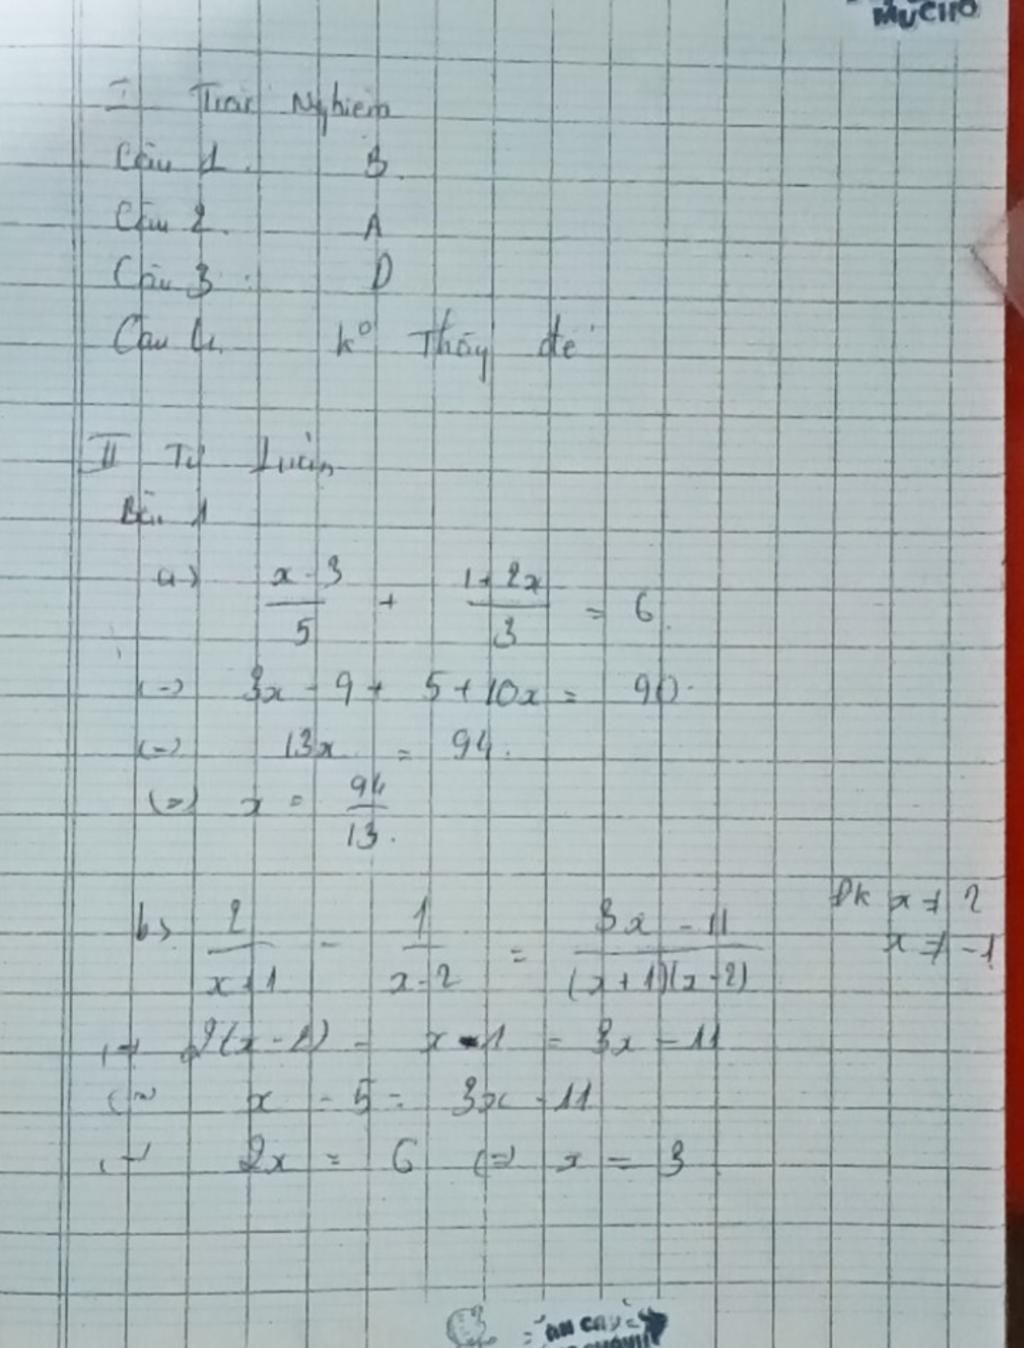 MUCHO
I Trắc Nghiệm
Câu 1. B
Câu 2. A
Câu 3: D
Câu 4. k° Thấy đề
II Tự Luận
Bài 1
a) \frac{x-3}{5} + \frac{1+2x}{3} = 6
(=) 3x - 9 + 5 + 10x = 90.
(=) 13x = 94.
(=) x = \frac{94}{13}.
b) \frac{2}{x+1} - \frac{1}{x-2} = \frac{3x-11}{(x+1)(x-2)} Đk x ≠ 2
x ≠ -1
(=) 2(x-2) - x - 1 = 3x - 11
(=) x - 5 = 3x - 11
(=) 2x = 6 (=) x = 3